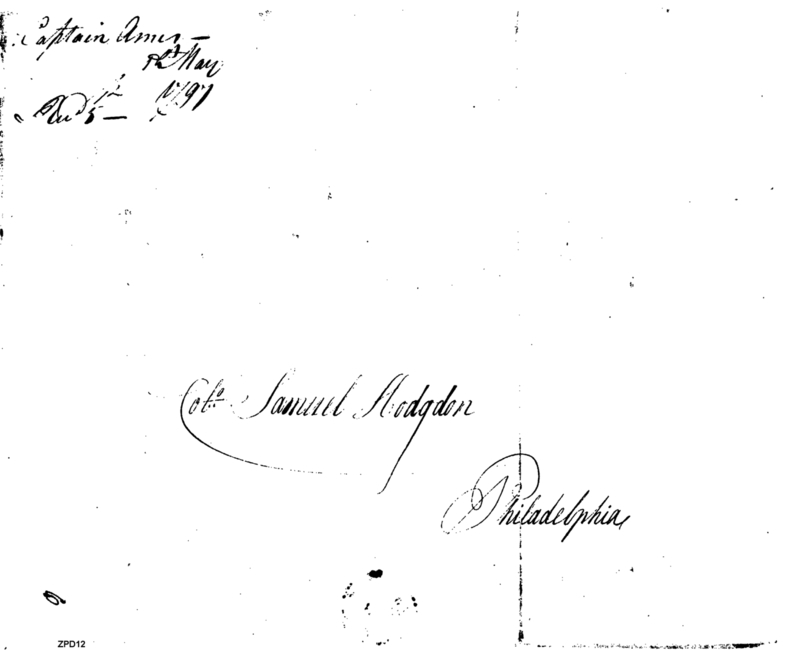 Captain Ames —
May
1797
5 —
Colo. Samuel Hodgdon
Philadelphia
ZPD12